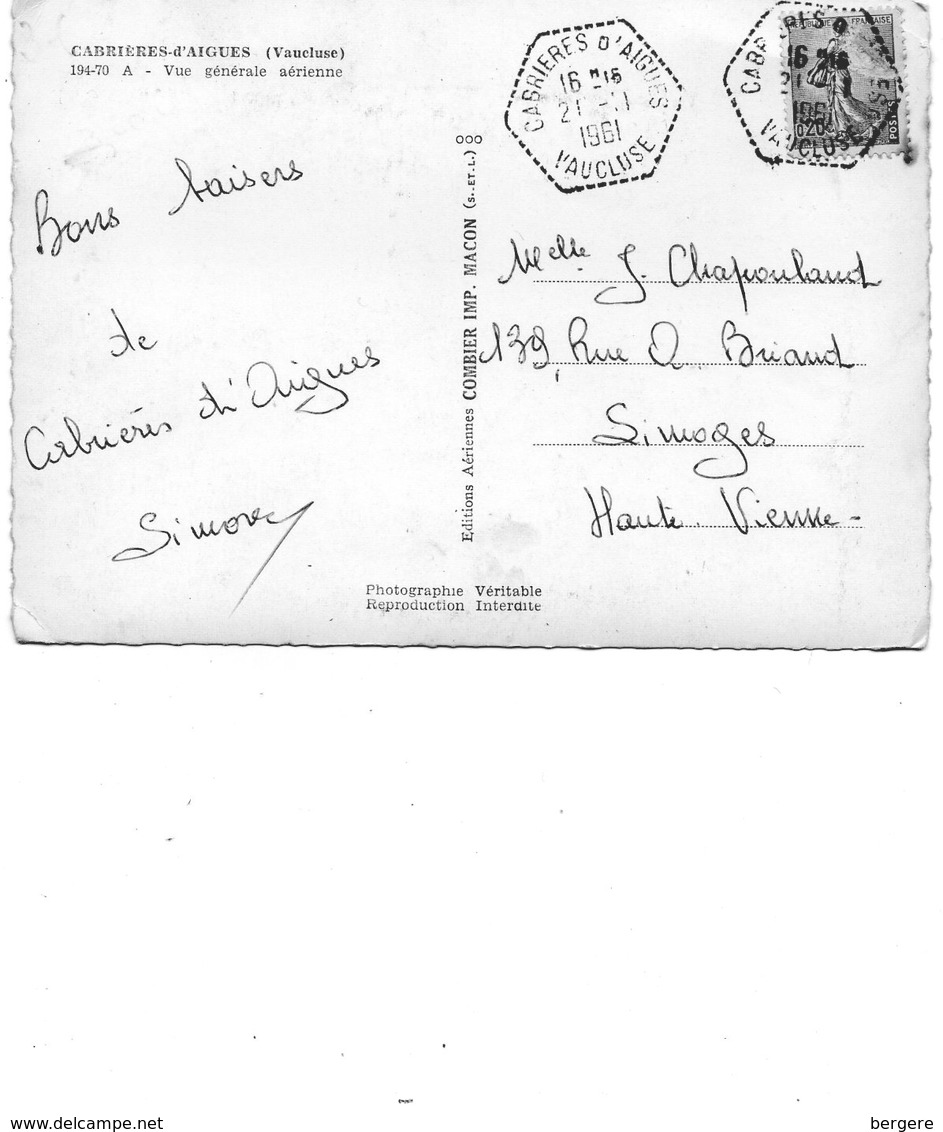 CABRIÈRES-d'AIGUES (Vaucluse)
194-70 A - Vue générale aérienne
Bons baisers
de
Cabrières d'Aigues
Simone
CABRIERES D'AIGUES
16 H 15
21 -11
1961
VAUCLUSE
REPUBLIQUE FRANÇAISE
0,20
POSTES
16 H 15
1961
VAUCLUSE
ooo
Editions Aériennes COMBIER IMP. MACON (S.-ET-L.)
Melle J. Chapouland
139, Rue A. Briand
Limoges
Haute Vienne -
Photographie Véritable
Reproduction Interdite
delcampe.net
bergere